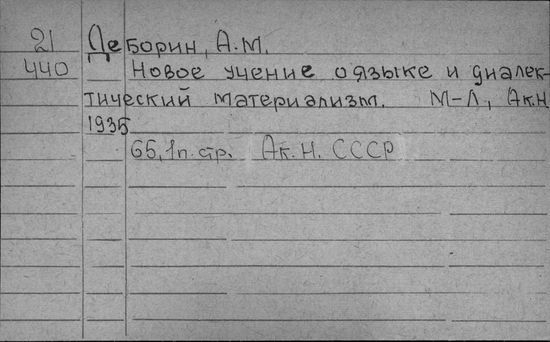 21
440
Деборин, А.М.
Новое учение о языке и диалек-
тический материализм. М-Л, Ак.Н.
1935
65, 1 п. стр. Ак. Н. СССР